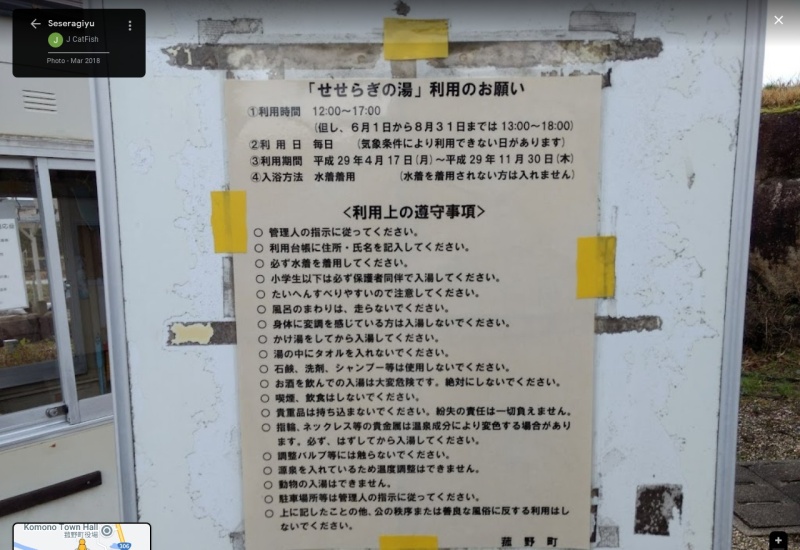 Seseragiyu
J CatFish
Photo - Mar 2018
「せせらぎの湯」利用のお願い
①利用時間 12:00～17:00
(但し、６月１日から８月３１日までは 13:00～18:00)
②利 用 日 毎日 (気象条件により利用できない日があります)
③利用期間 平成 29 年 4 月 17 日(月)～平成 29 年 11 月 30 日(木)
④入浴方法 水着着用 (水着を着用されない方は入れません)
<利用上の遵守事項>
○ 管理人の指示に従ってください。
○ 利用台帳に住所・氏名を記入してください。
○ 必ず水着を着用してください。
○ 小学生以下は必ず保護者同伴で入湯してください。
○ たいへんすべりやすいので注意してください。
○ 風呂のまわりは、走らないでください。
○ 身体に変調を感じている方は入湯しないでください。
○ かけ湯をしてから入湯してください。
○ 湯の中にタオルを入れないでください。
○ 石鹸、洗剤、シャンプー等は使用しないでください。
○ お酒を飲んでの入湯は大変危険です。絶対にしないでください。
○ 喫煙、飲食はしないでください。
○ 貴重品は持ち込まないでください。紛失の責任は一切負えません。
○ 指輪、ネックレス等の貴金属は温泉成分により変色する場合があり
ます。必ず、はずしてから入湯してください。
○ 調整バルブ等には触らないでください。
○ 源泉を入れているため温度調整はできません。
○ 動物の入湯はできません。
○ 駐車場所等は管理人の指示に従ってください。
○ 上に記したことの他、公の秩序または善良な風俗に反する利用はし
ないでください。
菰 野 町
Komono Town Hall
菰野町役場
306